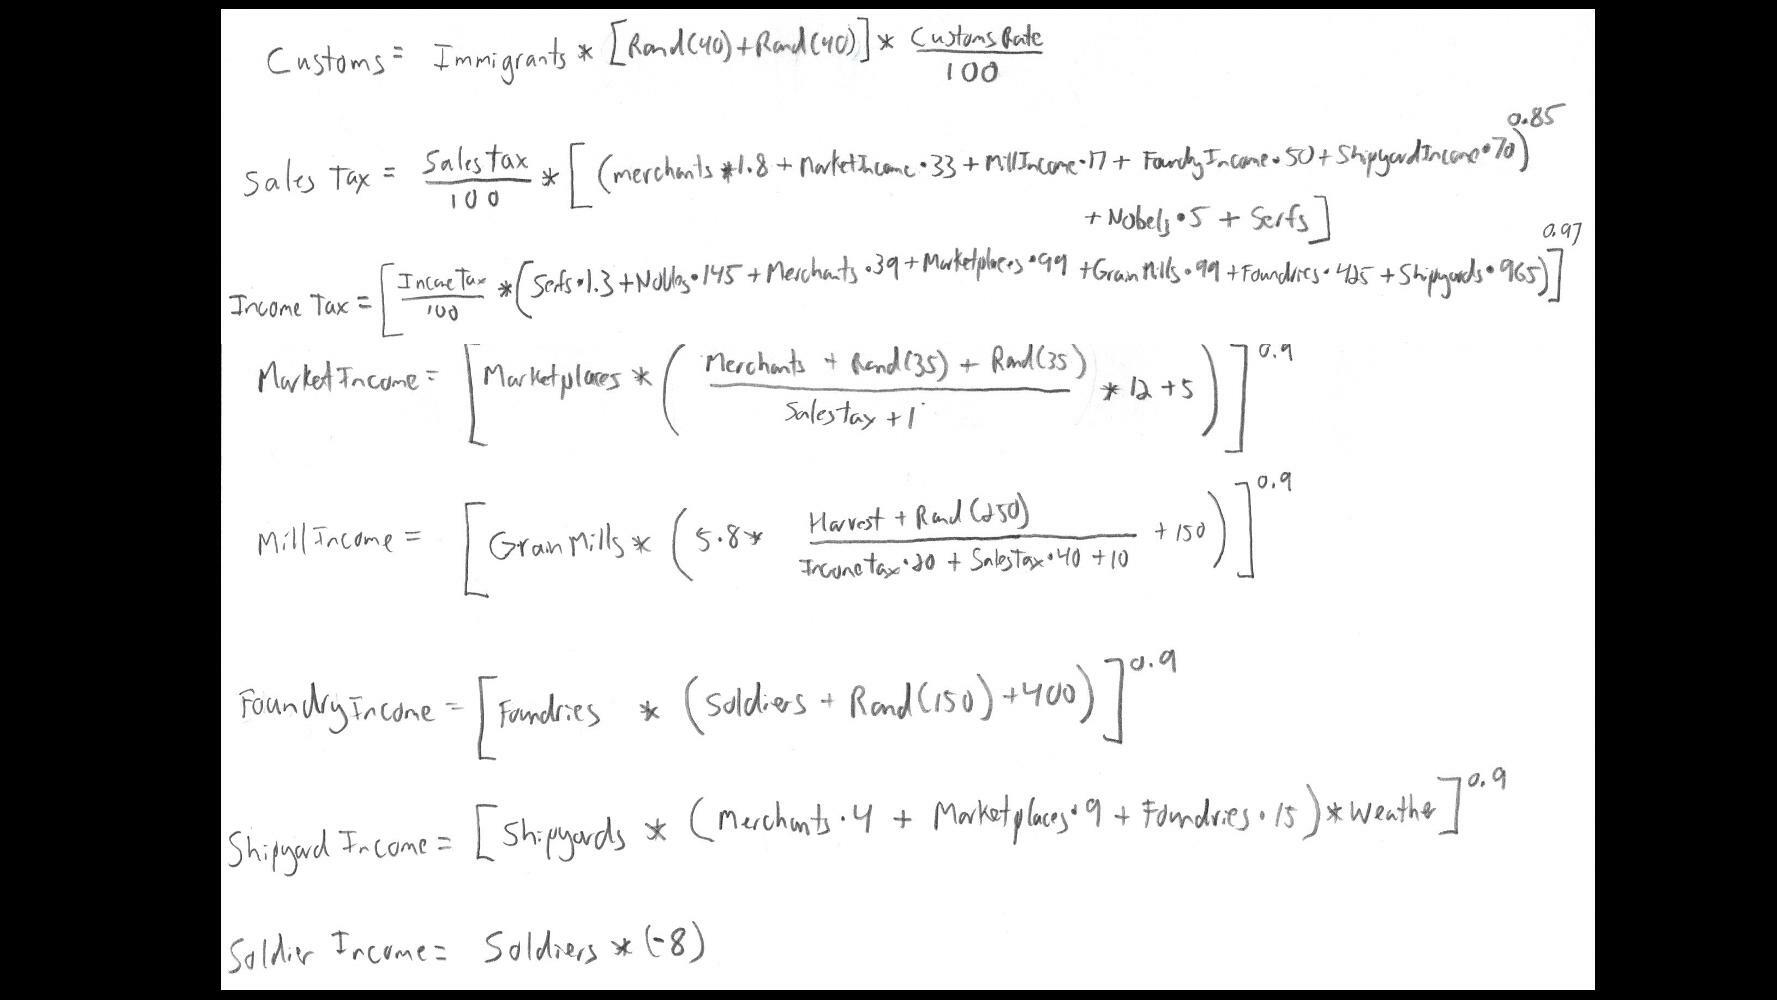 Customs = Immigrants * [Rand(40) + Rand(40)] * CustomsRate / 100
Sales Tax = Salestax / 100 * [(merchants * 1.8 + MarketIncome · 33 + MillIncome · 17 + FoundryIncome · 50 + ShipyardIncome · 70)^0.85
+ Nobels · 5 + Serfs]
Income Tax = [IncomeTax / 100 * (Serfs · 1.3 + Nobles · 145 + Merchants · 39 + Marketplaces · 99 + GrainMills · 99 + Foundries · 425 + Shipyards · 965)]^0.97
MarketIncome = [Marketplaces * (Merchants + Rand(35) + Rand(35) / Salestax + 1 * 12 + 5)]^0.9
MillIncome = [GrainMills * (5.8 * Harvest + Rand(250) / Incometax · 20 + Salestax · 40 + 10 + 150)]^0.9
FoundryIncome = [Foundries * (Soldiers + Rand(150) + 400)]^0.9
Shipyard Income = [Shipyards * (merchants · 4 + Marketplaces · 9 + Foundries · 15) * Weather]^0.9
Soldier Income = Soldiers * (-8)